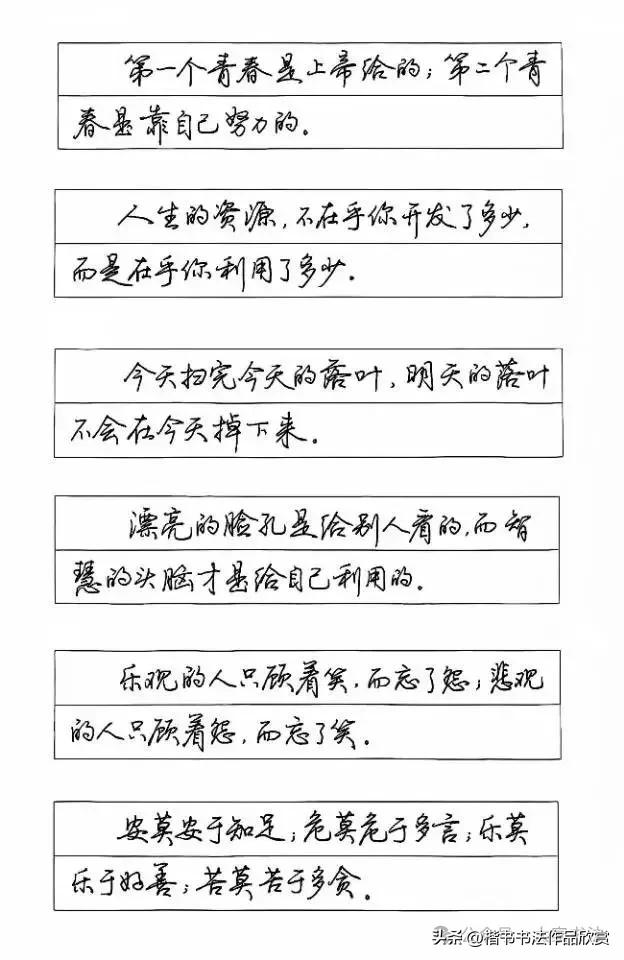 第一个青春是上帝给的；第二个青
春是靠自己努力的。
人生的资源，不在乎你开发了多少，
而是在乎你利用了多少。
今天扫完今天的落叶，明天的落叶
不会在今天掉下来。
漂亮的脸孔是给别人看的，而智
慧的头脑才是给自己利用的。
乐观的人只顾着笑，而忘了怨；悲观
的人只顾着怨，而忘了笑。
安莫安于知足；危莫危于多言；乐莫
乐于好善；苦莫苦于多贪。
头条@楷书书法作品欣赏